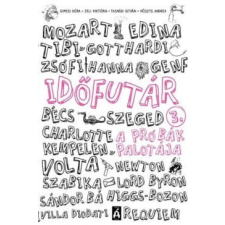 GIMESI DÓRA - JELI VIKTÓRIA - TASNÁDI ISTVÁN - VÉSZITS ANDREA
MOZART EDINA
TIBI GOTTHARDI
ZSÓFI HANNA GENF
IDŐFUTÁR
BÉCS SZEGED 3.
CHARLOTTE A PRÓBÁK
KEMPELEN PALOTÁJA
VOLTA NEWTON
SZABIKA LORD BYRON
SÁNDOR BÁ HIGGS-BOZON
VILLA DIODATI A REQUIEM